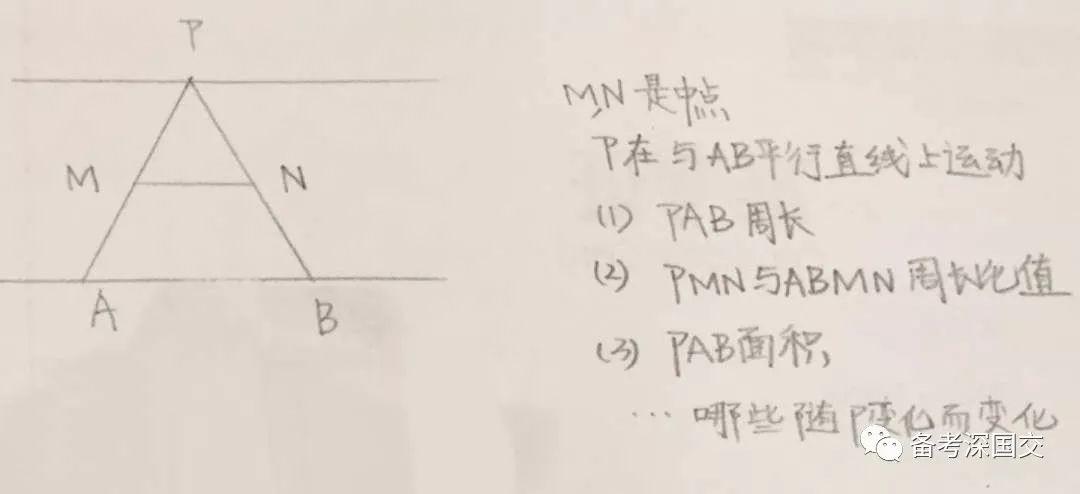 P
M
N
A
B
M,N是中点
P在与AB平行直线上运动
(1) PAB周长
(2) PMN与ABMN周长比值
(3) PAB面积,
… 哪些随P变化而变化
备考深国交